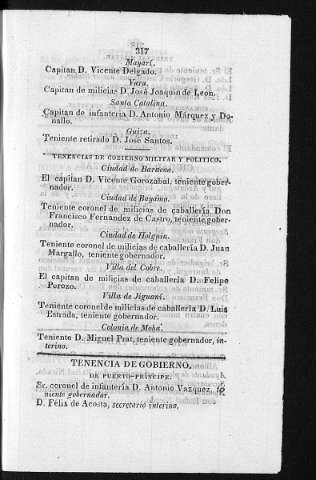 317
Mayarí.
Capitan D. Vicente Delgado.
Vara.
Capitan de milicias D. José Joaquin de Leon.
Santa Catalina.
Capitan de infantería D. Antonio Márquez y Do-
nallo.
Guisa.
Teniente retirado D. José Santos.
TENENCIAS DE GOBIERNO MILITAR Y POLITICO.
Ciudad de Baracoa.
El capitan D. Vicente Gorozabal, teniente gober-
nador.
Ciudad de Bayamo.
Teniente coronel de milicias de caballería Don
Francisco Fernandez de Castro, teniente gober-
nador.
Ciudad de Holguin.
Teniente coronel de milicias de caballería D. Juan
Margallo, teniente gobernador.
Villa del Cobre.
El capitan de milicias de caballería D. Felipe
Porozo.
Villa de Jiguaní.
Teniente coronel de milicias de caballería D. Luis
Estrada, teniente gobernador.
Colonia de Moha.
Teniente D. Miguel Prat, teniente gobernador, in-
terino.
TENENCIA DE GOBIERNO.
DE PUERTO-PRÍNCIPE.
Sr. coronel de infantería D. Antonio Vazquez, te
niente gobernador.
D. Félix de Acosta, secretario interino.